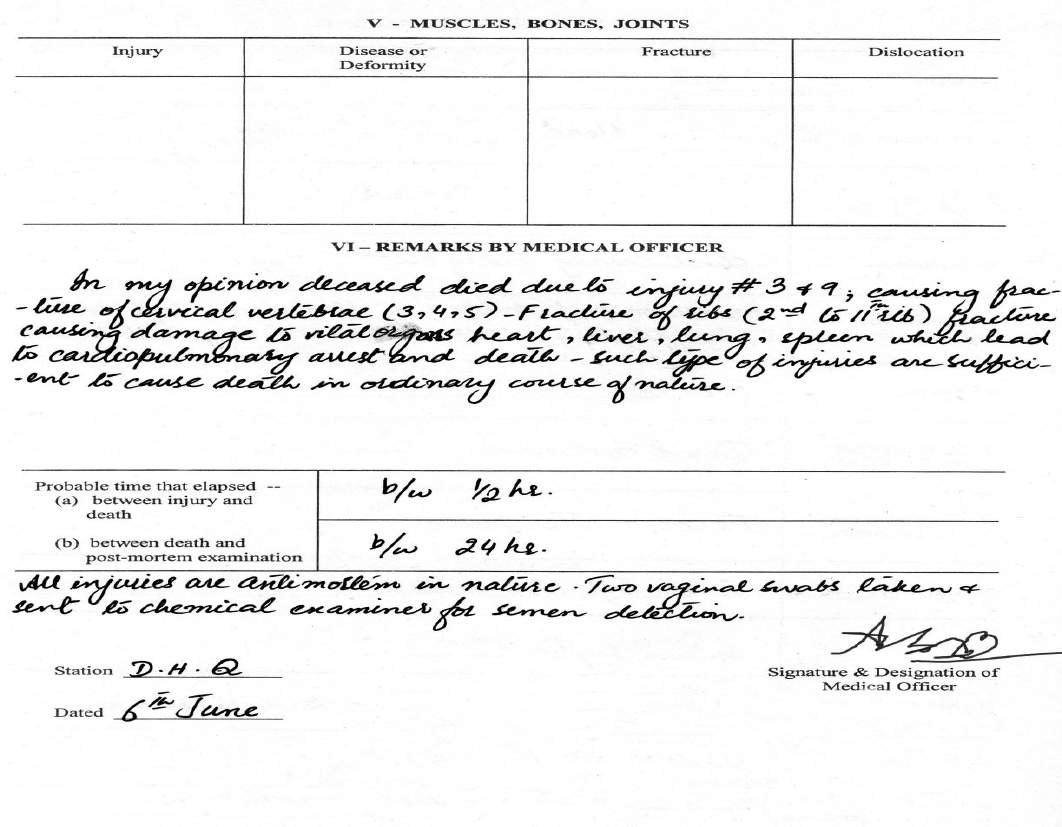 V - MUSCLES, BONES, JOINTS
Injury
Disease or
Deformity
Fracture
Dislocation
VI – REMARKS BY MEDICAL OFFICER
In my opinion deceased died due to injury # 3 & 9; causing frac-
-ture of cervical vertebrae (3,4,5) - Fracture of ribs (2nd to 11th rib) fracture
causing damage to vital organs heart, liver, lung, spleen which lead
to cardiopulmonary arrest and death - such type of injuries are suffici-
-ent to cause death in ordinary course of nature.
Probable time that elapsed --
(a) between injury and
death
b/w 1/2 hr.
(b) between death and
post-mortem examination
b/w 24 hr.
All injuries are antimortem in nature. Two vaginal swabs taken &
sent to chemical examiner for semen detection.
Station D.H.Q
Signature & Designation of
Medical Officer
Dated 6th June